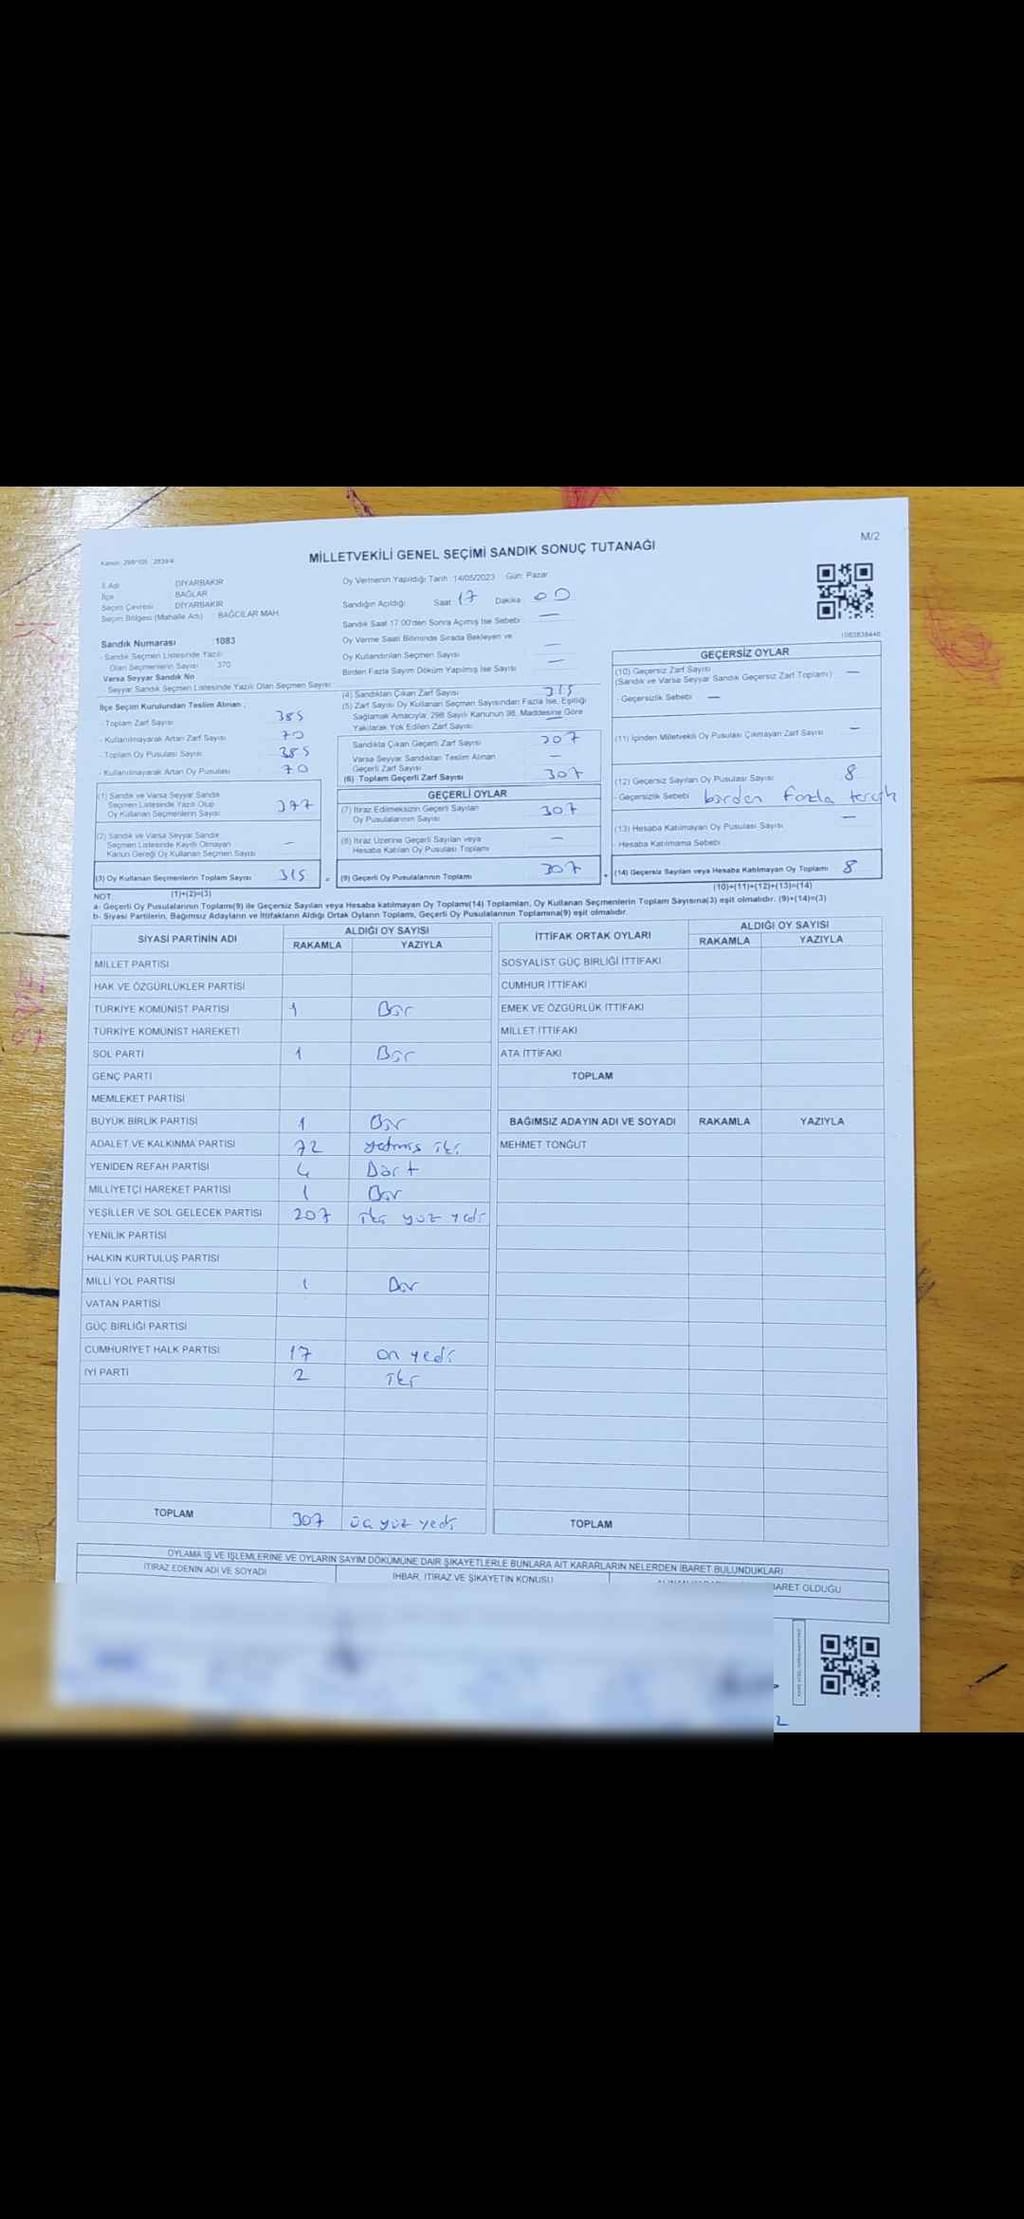 M/2
MİLLETVEKİLİ GENEL SEÇİMİ SANDIK SONUÇ TUTANAĞI
İl Adı : DİYARBAKIR
İlçe : BAĞLAR
Seçim Çevresi : DİYARBAKIR
Seçim Bölgesi (Mahalle Adı) : BAĞCILAR MAH.
Sandık Numarası :1083
- Sandık Seçmen Listesinde Yazılı
Olan Seçmenlerin Sayısı : 370
Varsa Seyyar Sandık No
Seyyar Sandık Seçmen Listesinde Yazılı Olan Seçmen Sayısı
İlçe Seçim Kurulundan Teslim Alınan ;
- Toplam Zarf Sayısı 385
- Kullanılmayarak Artan Zarf Sayısı 70
- Toplam Oy Pusulası Sayısı 385
- Kullanılmayarak Artan Oy Pusulası 70
(1) Sandık ve Varsa Seyyar Sandık
Seçmen Listesinde Yazılı Olup
Oy Kullanan Seçmenlerin Sayısı
(2) Sandık ve Varsa Seyyar Sandık
Seçmen Listesinde Kayıtlı Olmayan
Kanun Gereği Oy Kullanan Seçmen Sayısı –
(3) Oy Kullanan Seçmenlerin Toplam Sayısı 315
(1)+(2)=(3)
Oy Vermenin Yapıldığı Tarih :14/05/2023 Gün: Pazar
Sandığın Açıldığı Saat 17 Dakika 00
Sandık Saat 17:00'den Sonra Açılmış İse Sebebi: —
Oy Verme Saati Bitiminde Sırada Bekleyen ve
Oy Kullandırılan Seçmen Sayısı —
Birden Fazla Sayım Döküm Yapılmış İse Sayısı —
(4) Sandıktan Çıkan Zarf Sayısı 315
(5) Zarf Sayısı Oy Kullanan Seçmen Sayısından Fazla İse, Eşitliği
Sağlamak Amacıyla; 298 Sayılı Kanunun 98. Maddesine Göre
Yakılarak Yok Edilen Zarf Sayısı —
Sandıkta Çıkan Geçerli Zarf Sayısı 307
Varsa Seyyar Sandıktan Teslim Alınan
Geçerli Zarf Sayısı –
(6) Toplam Geçerli Zarf Sayısı 307
GEÇERLİ OYLAR
(7) İtiraz Edilmeksizin Geçerli Sayılan
Oy Pusulalarının Sayısı 307
(8) İtiraz Üzerine Geçerli Sayılan veya
Hesaba Katılan Oy Pusulası Toplamı –
(9) Geçerli Oy Pusulalarının Toplamı 307
GEÇERSİZ OYLAR
(10) Geçersiz Zarf Sayısı
(Sandık ve Varsa Seyyar Sandık Geçersiz Zarf Toplamı) —
- Geçersizlik Sebebi —
(11) İçinden Milletvekili Oy Pusulası Çıkmayan Zarf Sayısı –
(12) Geçersiz Sayılan Oy Pusulası Sayısı 8
- Geçersizlik Sebebi birden fazla tercih
(13) Hesaba Katılmayan Oy Pusulası Sayısı —
- Hesaba Katılmama Sebebi
(14) Geçersiz Sayılan veya Hesaba Katılmayan Oy Toplamı 8
(10)+(11)+(12)+(13)=(14)
NOT:
a- Geçerli Oy Pusulalarının Toplamı(9) ile Geçersiz Sayılan veya Hesaba katılmayan Oy Toplamı(14) Toplamları, Oy Kullanan Seçmenlerin Toplam Sayısına(3) eşit olmalıdır. (9)+(14)=(3)
b- Siyasi Partilerin, Bağımsız Adayların ve İttifakların Aldığı Ortak Oyların Toplamı, Geçerli Oy Pusulalarının Toplamına(9) eşit olmalıdır.
SİYASİ PARTİNİN ADI ALDIĞI OY SAYISI
RAKAMLA YAZIYLA
MİLLET PARTİSİ
HAK VE ÖZGÜRLÜKLER PARTİSİ
TÜRKİYE KOMÜNİST PARTİSİ 1 Bir
TÜRKİYE KOMÜNİST HAREKETİ
SOL PARTİ 1 Bir
GENÇ PARTİ
MEMLEKET PARTİSİ
BÜYÜK BİRLİK PARTİSİ 1 Bir
ADALET VE KALKINMA PARTİSİ 72 yetmiş iki
YENİDEN REFAH PARTİSİ 4 Dört
MİLLİYETÇİ HAREKET PARTİSİ 1 Bir
YEŞİLLER VE SOL GELECEK PARTİSİ 207 iki yüz yedi
YENİLİK PARTİSİ
HALKIN KURTULUŞ PARTİSİ
MİLLİ YOL PARTİSİ 1 Bir
VATAN PARTİSİ
GÜÇ BİRLİĞİ PARTİSİ
CUMHURİYET HALK PARTİSİ 17 on yedi
İYİ PARTİ 2 iki
TOPLAM 307 üç yüz yedi
İTTİFAK ORTAK OYLARI ALDIĞI OY SAYISI
RAKAMLA YAZIYLA
SOSYALİST GÜÇ BİRLİĞİ İTTİFAKI
CUMHUR İTTİFAKI
EMEK VE ÖZGÜRLÜK İTTİFAKI
MİLLET İTTİFAKI
ATA İTTİFAKI
TOPLAM
BAĞIMSIZ ADAYIN ADI VE SOYADI RAKAMLA YAZIYLA
MEHMET TONĞUT
TOPLAM
OYLAMA İŞ VE İŞLEMLERİNE VE OYLARIN SAYIM DÖKÜMÜNE DAİR ŞİKAYETLERLE BUNLARA AİT KARARLARIN NELERDEN İBARET BULUNDUKLARI
İTİRAZ EDENİN ADI VE SOYADI İHBAR, İTİRAZ VE ŞİKAYETİN KONUSU BARET OLDUĞU